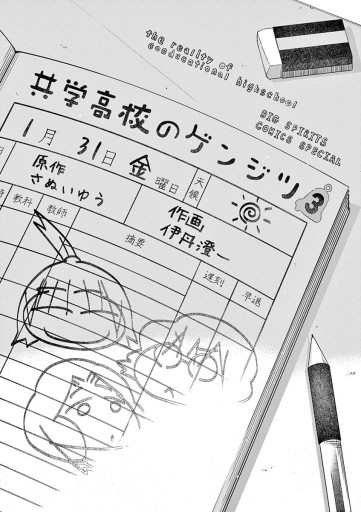 the reality of
coeducational highschool
BIG SPIRITS
COMICS SPECIAL
共学高校のゲンジツ 3
1月31日 金 曜日 天候
原作
さぬいゆう
作画
伊丹澄一
教科 教師 摘要 遅刻 早退